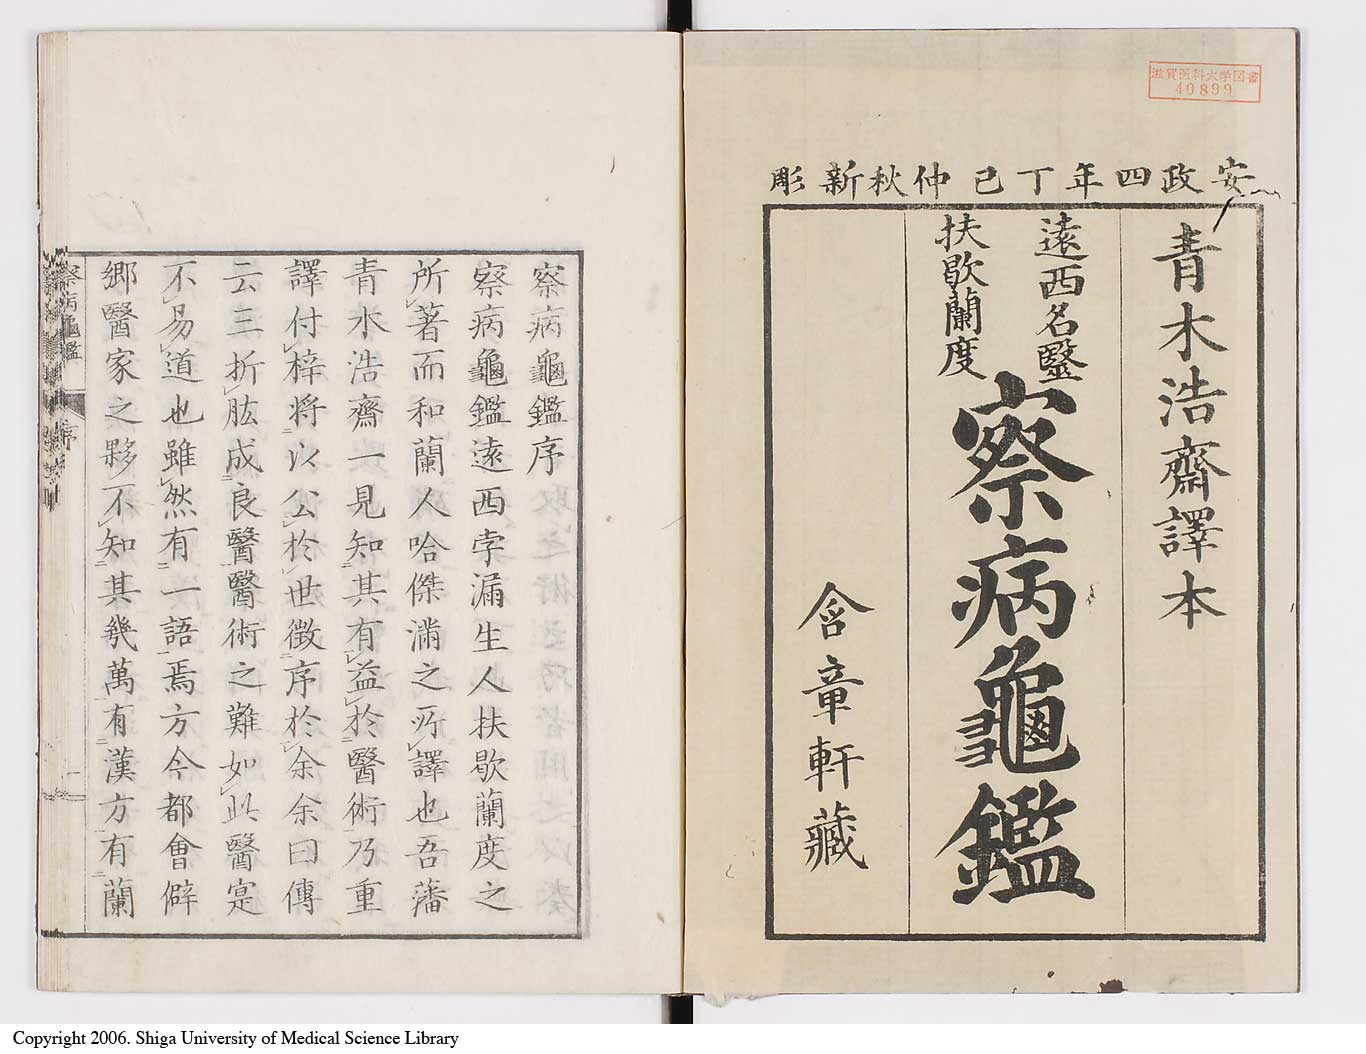 滋賀医科大学図書
40899
安政四年丁巳仲秋新彫
青木浩齋譯本
遠西名醫
扶歇蘭度
察病龜鑑
含章軒藏
察病龜鑑序
察病龜鑑遠西孛漏生人扶歇蘭度之
所著而和蘭人哈傑滿之所譯也吾藩
青木浩齋一見知其有益於醫術乃重
譯付梓將以公於世徴序於余余曰傳
云三折肱成良醫醫術之難如此醫寔
不易道也雖然有一語焉方今都會僻
鄉醫家之夥不知其幾萬有漢方有蘭
察病龜鑑
序
一
Copyright 2006. Shiga University of Medical Science Library